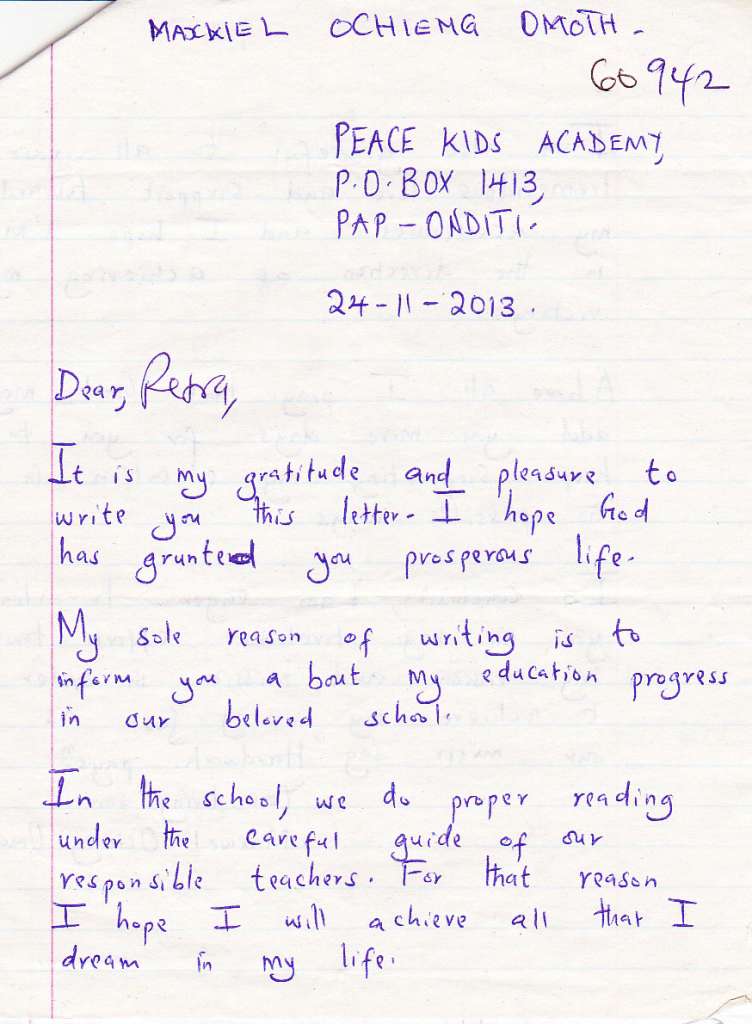 MAXKIEL OCHIENG OMOTH -
60942
PEACE KIDS ACADEMY,
P.O. BOX 1413,
PAP - ONDITI.
24-11-2013.
Dear, Petra,
It is my gratitude and pleasure to
write you this letter. I hope God
has grunted you prosperous life.
My sole reason of writing is to
inform you a bout my education progress
in our beloved school.
In the school, we do proper reading
under the careful guide of our
responsible teachers. For that reason
I hope I will achieve all that I
dream in my life.